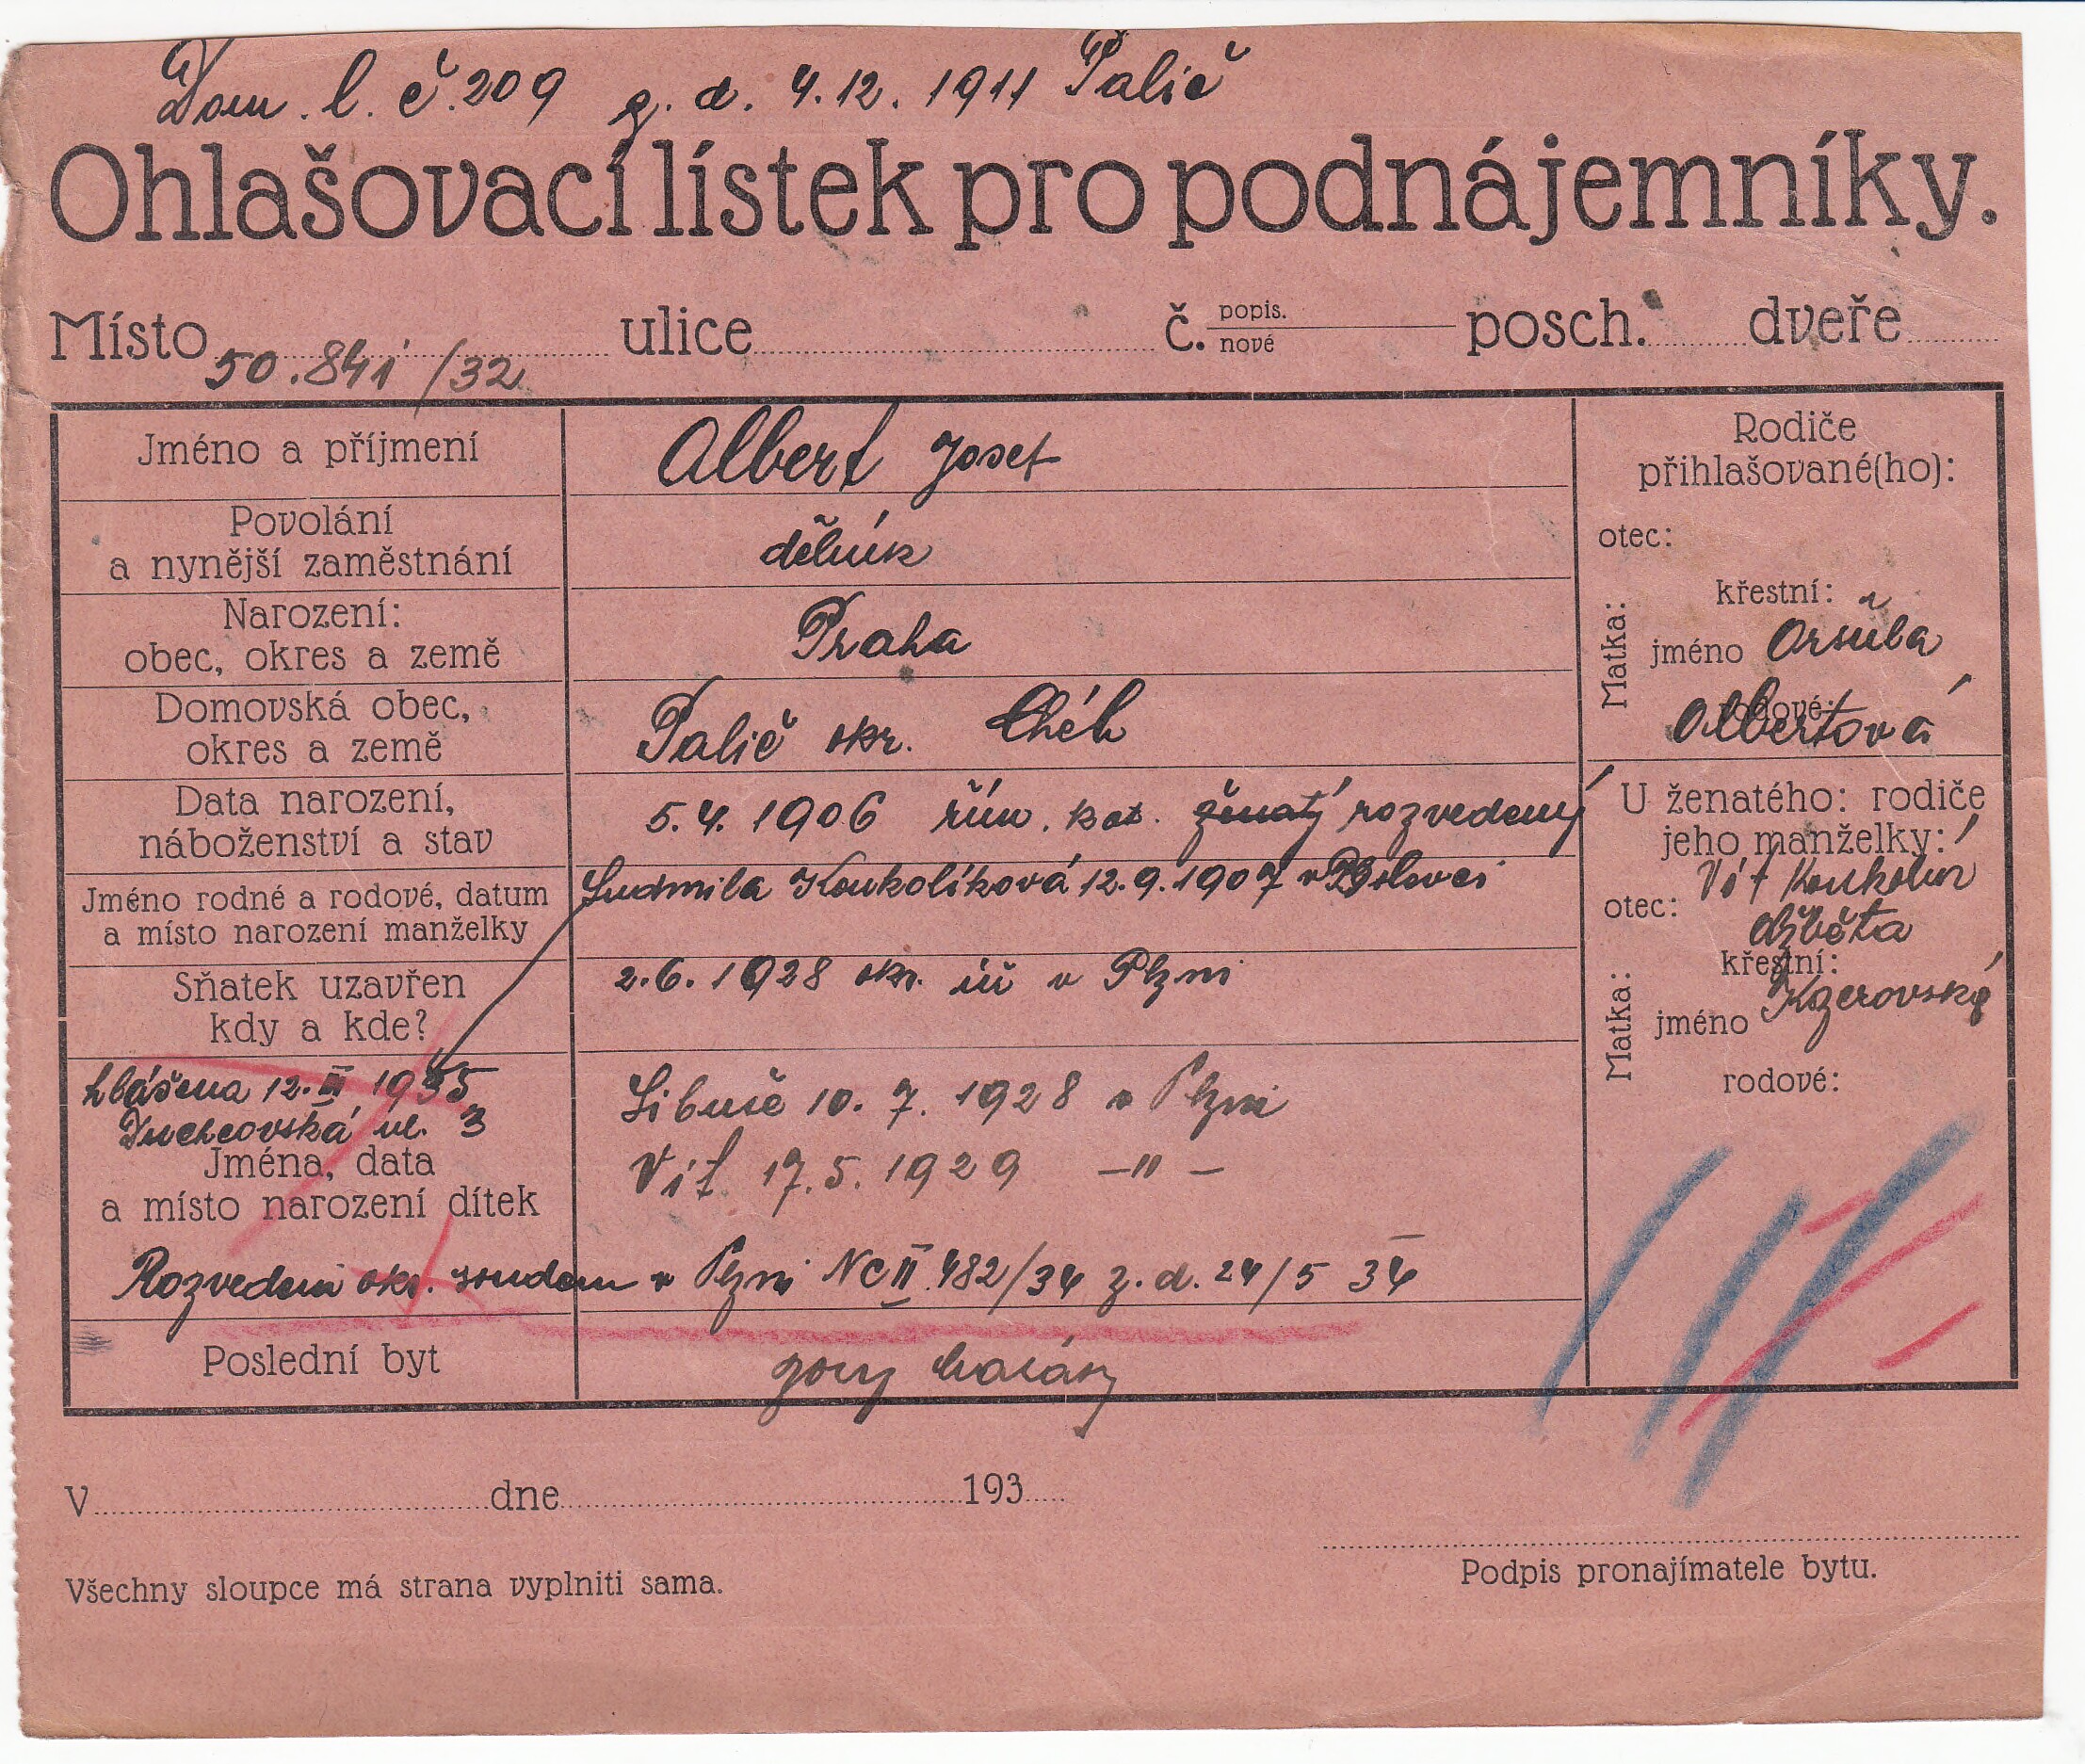 Dom. l. č. 209 z. d. 4. 12. 1911 Palič
Ohlašovací lístek pro podnájemníky.
Místo ulice č. popis. nové posch. dveře
50.841/32
Jméno a příjmení Albert Josef
Povolání
a nynější zaměstnání dělník
Narození:
obec, okres a země Praha
Domovská obec,
okres a země Palič okr. Chéb
Data narození,
náboženství a stav 5. 4. 1906 řím. kat. ženatý rozvedený
Jméno rodné a rodové, datum
a místo narození manželky Ludmila Koukolíková 12. 9. 1907 v
Sňatek uzavřen
kdy a kde? 2. 6. 1928 okr. úř v Plzni
hlášena 12. III 1935
Duchcovská ul. 3
Jména, data
a místo narození dítek
Libuše 10. 7. 1928 v Plzni
Vít 17. 5. 1929 -"-
Rozvedeni okr. soudem v Plzni Nc II 482/34 z. d. 24/5 34
Poslední byt
Rodiče
přihlašované(ho):
otec:
Matka:
křestní:
jméno Oršula
rodové:
Albertová
U ženatého: rodiče
jeho manželky:
otec: Vít
Alžběta
Matka:
křestní:
jméno
rodové:
V dne 193
Podpis pronajímatele bytu.
Všechny sloupce má strana vyplniti sama.